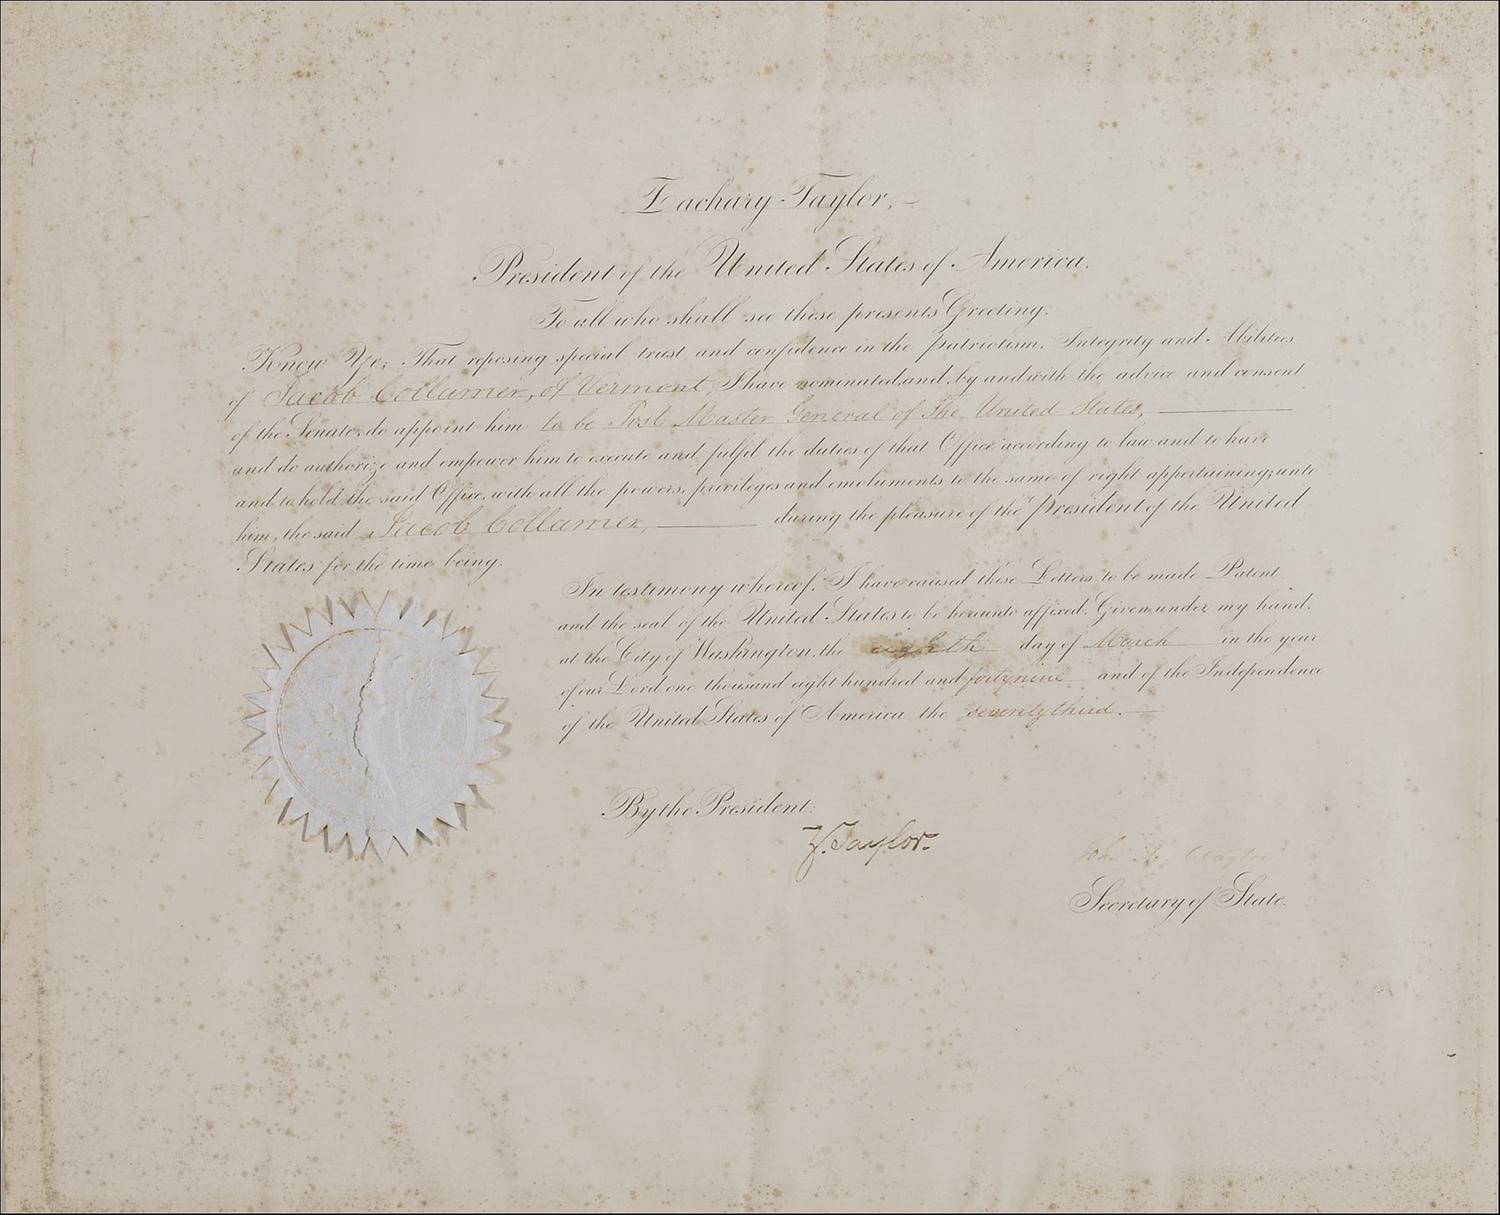 Zachary Taylor,
President of the United States of America.
To all who shall see these presents Greeting:
Know Ye; That reposing special trust and confidence in the Patriotism, Integrity and Abilities
of Jacob Collamer, of Vermont, I have nominated, and, by and with the advice and consent
of the Senate, do appoint him to be Post Master General of the United States,
and do authorize and empower him to execute and fulfil the duties of that Office according to law and to have
and to hold the said Office, with all the powers, privileges and emoluments to the same of right appertaining; unto
him, the said Jacob Collamer, during the pleasure of the President of the United
States for the time being.
In testimony whereof, I have caused these Letters to be made Patent
and the seal of the United States to be hereunto affixed. Given under my hand,
at the City of Washington, the eighth day of March in the year
of our Lord one thousand eight hundred and forty nine and of the Independence
of the United States of America the seventy third.
By the President:
Z. Taylor.
John M. Clayton
Secretary of State.